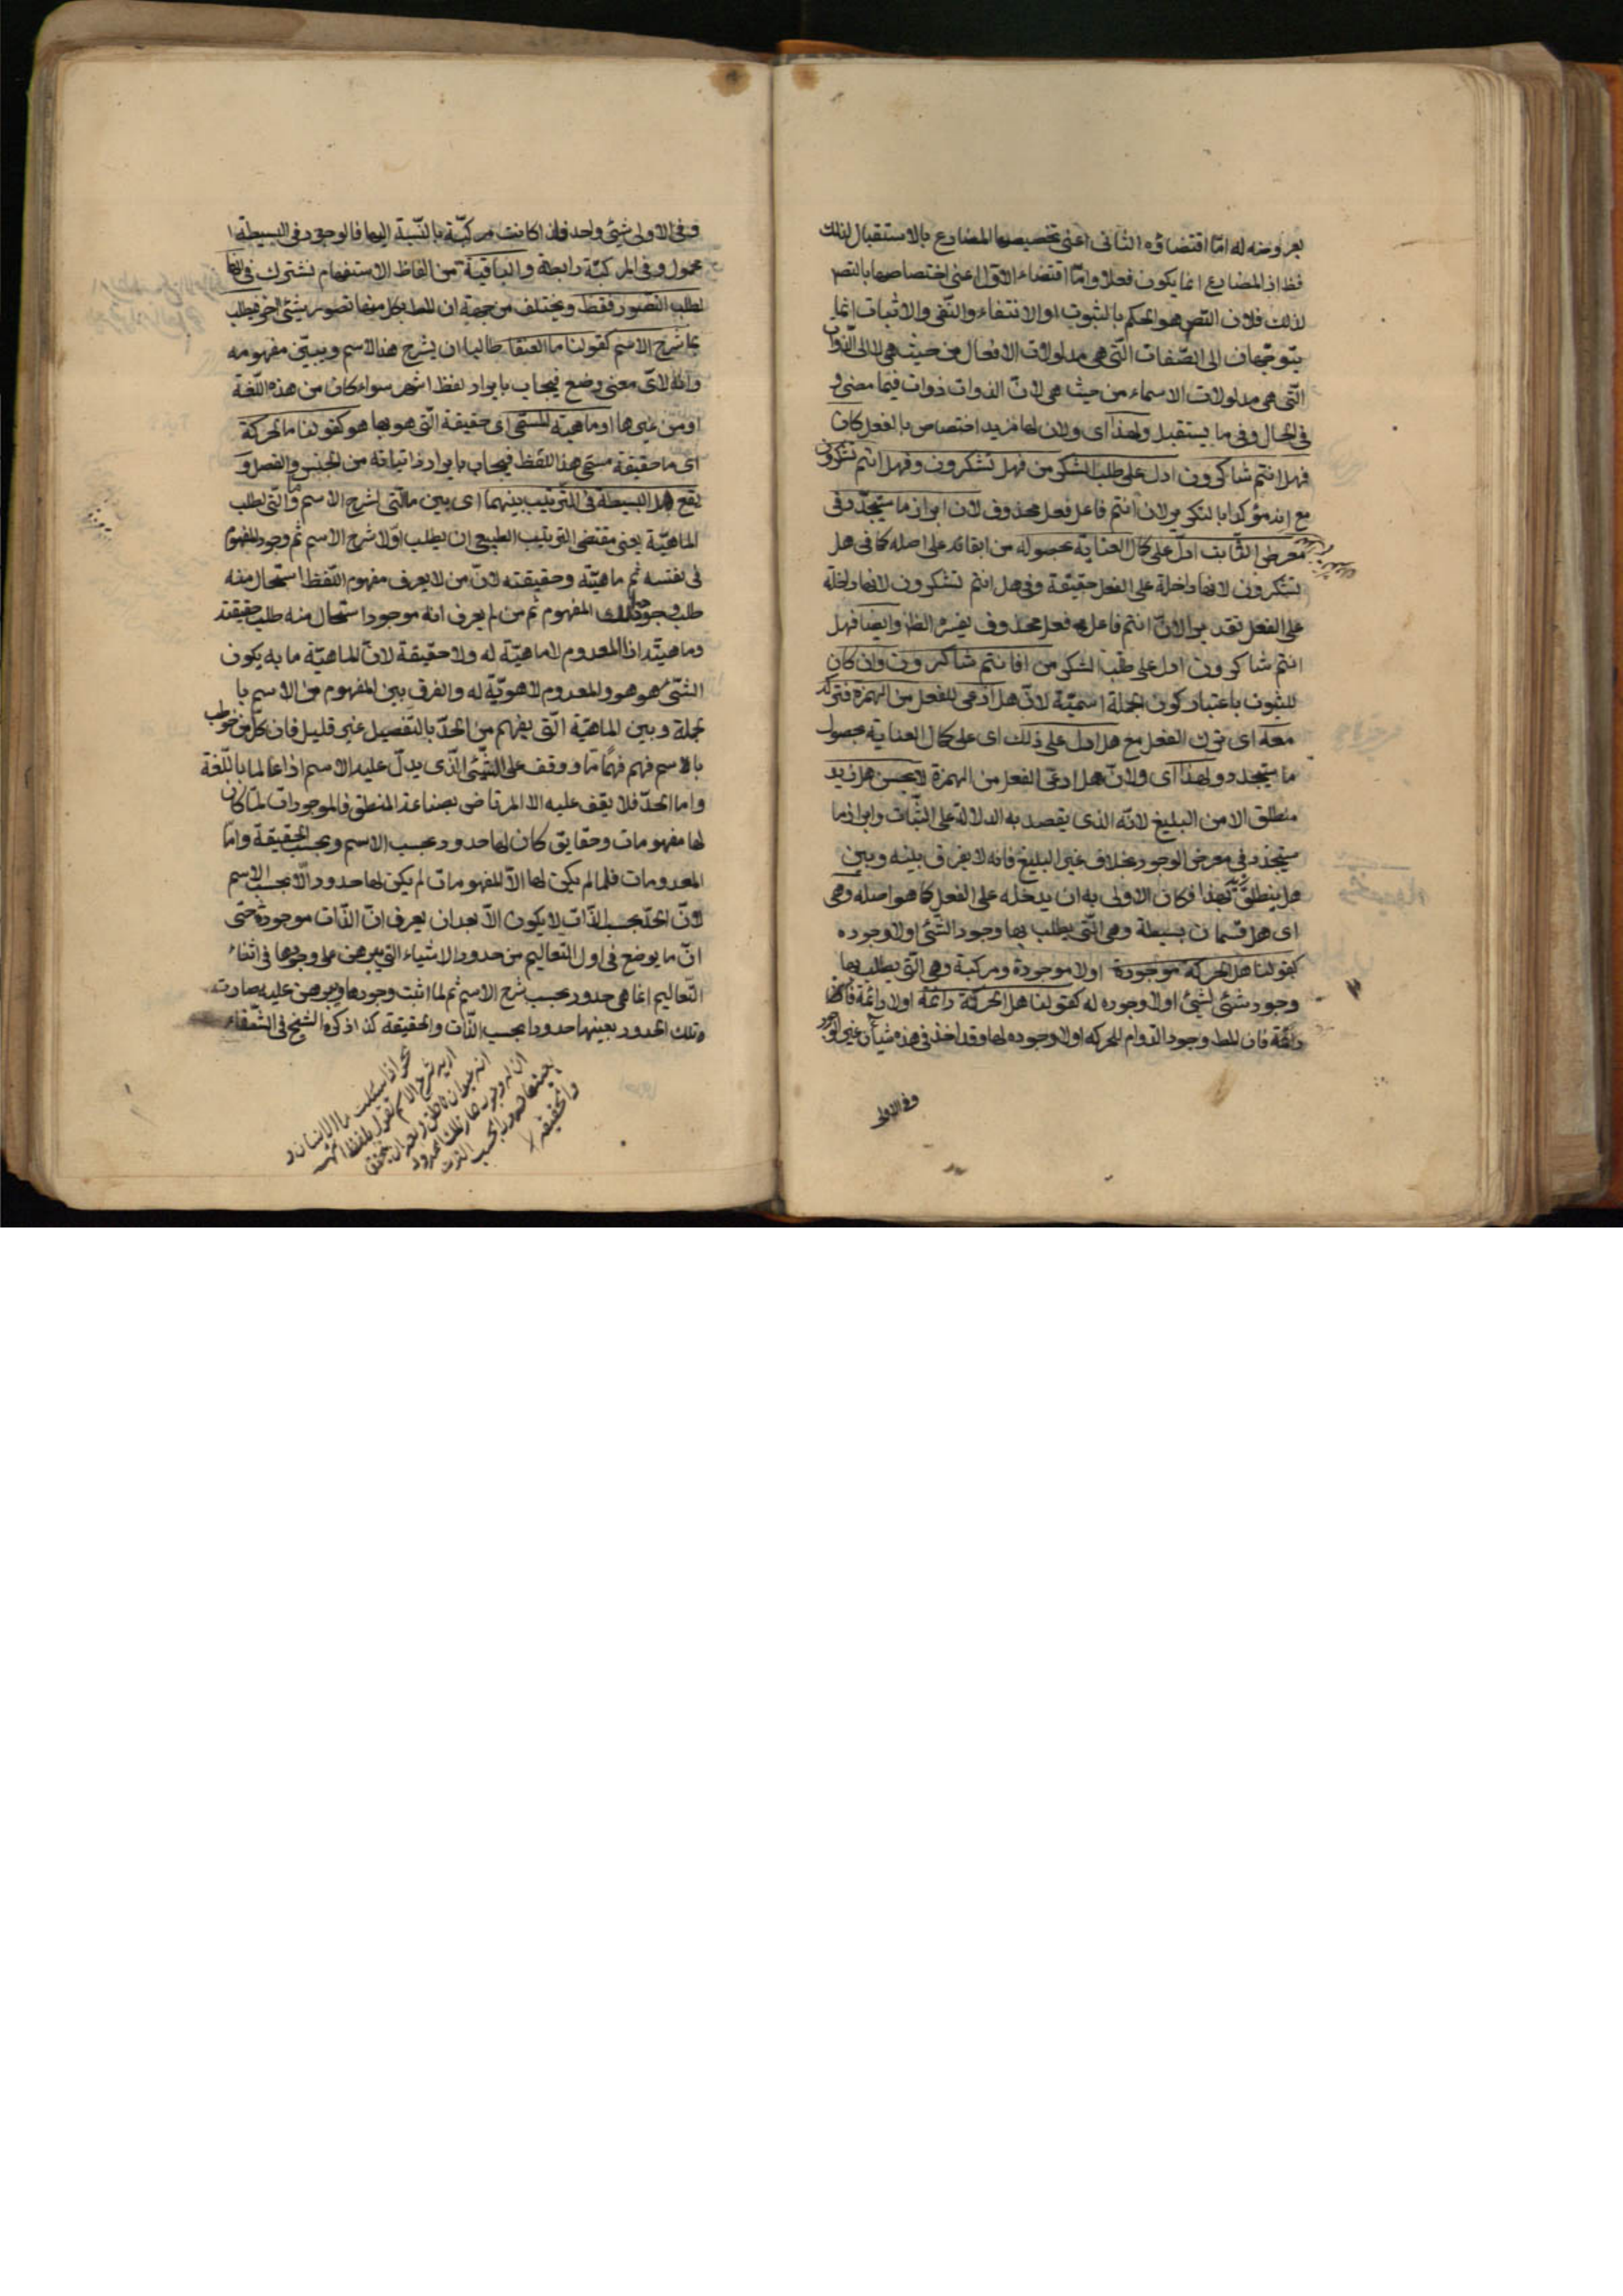 بعروضه له امّا اقتضاؤه الثانى اعنى تخصيصها المضارع بالاستقبال لذلك
فظ اذ المضارع انما يكون فعلا واما اقتضاء الاول اعنى اختصاصها بالتصد
لذلك فلان التصد هو الحكم بالثبوت او الانتفاء والنفى والاثبات انما
يتوجهان الى الصّفات التى هى مدلولات الافعال من حيث هى لا الى الذوات
التى هى مدلولات الاسماء من حيث هى لانّ الذوات ذوات فيما مضى و
فى الحال وفى ما يستقبل ولهذا اى ولان لها مزيد اختصاص بالفعل كان
فهل انتم شاكرون ادل على طلب الشكر من فهل تشكرون وفهل انتم تشكرون
مع انه مؤكد بالتكرير لان انتم فاعل فعل محذوف لان ابراز ما سيتجدد فى
معرض الثابت ادلّ على كمال العناية بحصوله من ابقائه على اصله كما فى هل
تشكرون لانها داخلة على الفعل حقيقة وفى هل انتم تشكرون لانها داخلة
على الفعل تقديرا لانّ انتم فاعل فعل محذوف يفسره الظ وايضا فهل
انتم شاكرون ادل على طلب الشكر من افانتم شاكرون وان كان
للثبوت باعتبار كون الجملة اسميّة لانّ هل ادعى للفعل من الهمزة فتركه
معه اى ترك الفعل مع هل ادل على ذلك اى على كمال العناية بحصول
ما سيتجدد ولهذا اى ولانّ هل ادعى الفعل من الهمزة لا يحسن هل زيد
منطلق الا من البليغ لانّه الذى يقصد به الدلالة على الثبات وابراز ما
سيتجدد فى معرض الوجود بخلاف غير البليغ فانه لا يفرق بينه وبين
هل ينطلق زيد فكان الاولى به ان يدخله على الفعل كما هو اصله وهى
اى هل قسمان بسيطة وهى التى يطلب بها وجود الشّئ اولا وجوده
كقولنا هل الحركة موجودة اولا موجودة ومركبة وهى التى يطلب بها
وجود شئ لشئ اولا وجوده له كقولنا هل الحركة دائمة اولا دائمة
دائمة فان المط وجود الدوام للحركة اولا وجوده لها وقد اخذ فى هذه شيأن غير الوجود
وفى الاولى
وفى الاولى شئ واحد فلذا كانت مركبّة بالنّسبة اليها فالوجود فى البسيطة
محمول وفى المركبّة رابطة والباقية من الفاظ الاستفهام تشترك فى انها
لطلب التصور فقط وتختلف من جهة ان المط بكل منها تصور شئ اخر فيطلب
بما شرح الاسم كقولنا ما العنقا طالبا ان يشرح هذا الاسم ويبيّن مفهومه
وانه لاىّ معنى وضع فيجاب بايراد لفظ اشهر سواء كان من هذه اللغة
او من غيرها او ماهية المسمّى اى حقيقة الّتى هو بها هو كقولنا ما الحركة
اى ما حقيقة مسمى هذا اللفظ فيجاب بايراد ذاتياته من الجنس والفصل و
تقع هل البسيطة فى الترتيب بينهما اى بين ما التى لشرح الاسم والتى لطلب
الماهيّة يعنى مقتضى الترتيب الطبيعى ان يطلب اوّلا شرح الاسم ثم وجود المفهوم
فى نفسه ثم ماهيّته وحقيقته لانّ من لا يعرف مفهوم اللفظ استحال منه
طلب وجود ذلك المفهوم ثم من لم يعرف انه موجود استحال منه طلب حقيقته
وماهيته اذ المعدوم لا ماهيّة له ولا حقيقة لانّ الماهيّة ما به يكون
الشّئ هو هو والمعدوم لا هويّة له والفرق بين المفهوم من الاسم با
لجملة وبين الماهيّة الّتى يفهم من الحدّ بالتّفصيل غير قليل فان كلّ من خوطب
بالاسم فهم فهمًا تاما ووقف على الشّئ الّذى يدلّ عليه الاسم اذا كان عالما باللّغة
واما الحدّ فلا يقف عليه الا المرتاض بصناعة المنطق فالموجودات لمّا كان
لها مفهومات وحقايق كان لها حدود بحسب الاسم وبحسب الحقيقة وامّا
المعدومات فلما لم يكن لها الاّ المفهومات لم يكن لها حدود الّا بحسب الاسم
لانّ الحدّ بحسب الذّات لا يكون الاّ بعد ان يعرف انّ الذّات موجودة حتى
انّ ما يوضع فى اول التعاليم من حدود الاشياء التى يبرهن على وجودها فى اثناء
التّعاليم انما هى حدود بحسب شرح الاسم ثم لما اثبت وجودها وبرهن عليه صارت
تلك الحدود بعينها حدودا بحسب الذّات والحقيقة كذا ذكره الشيخ فى الشّفاء
نحو اذا سئلت ما الانسان و
اريد شرح الاسم تقول بلفظ اشهر
انه حيوان ناطق وبعد ان يتحقق
ان له وجود صار تلك الحدود
بعينها حدودا بحسب الذات
والحقيقة